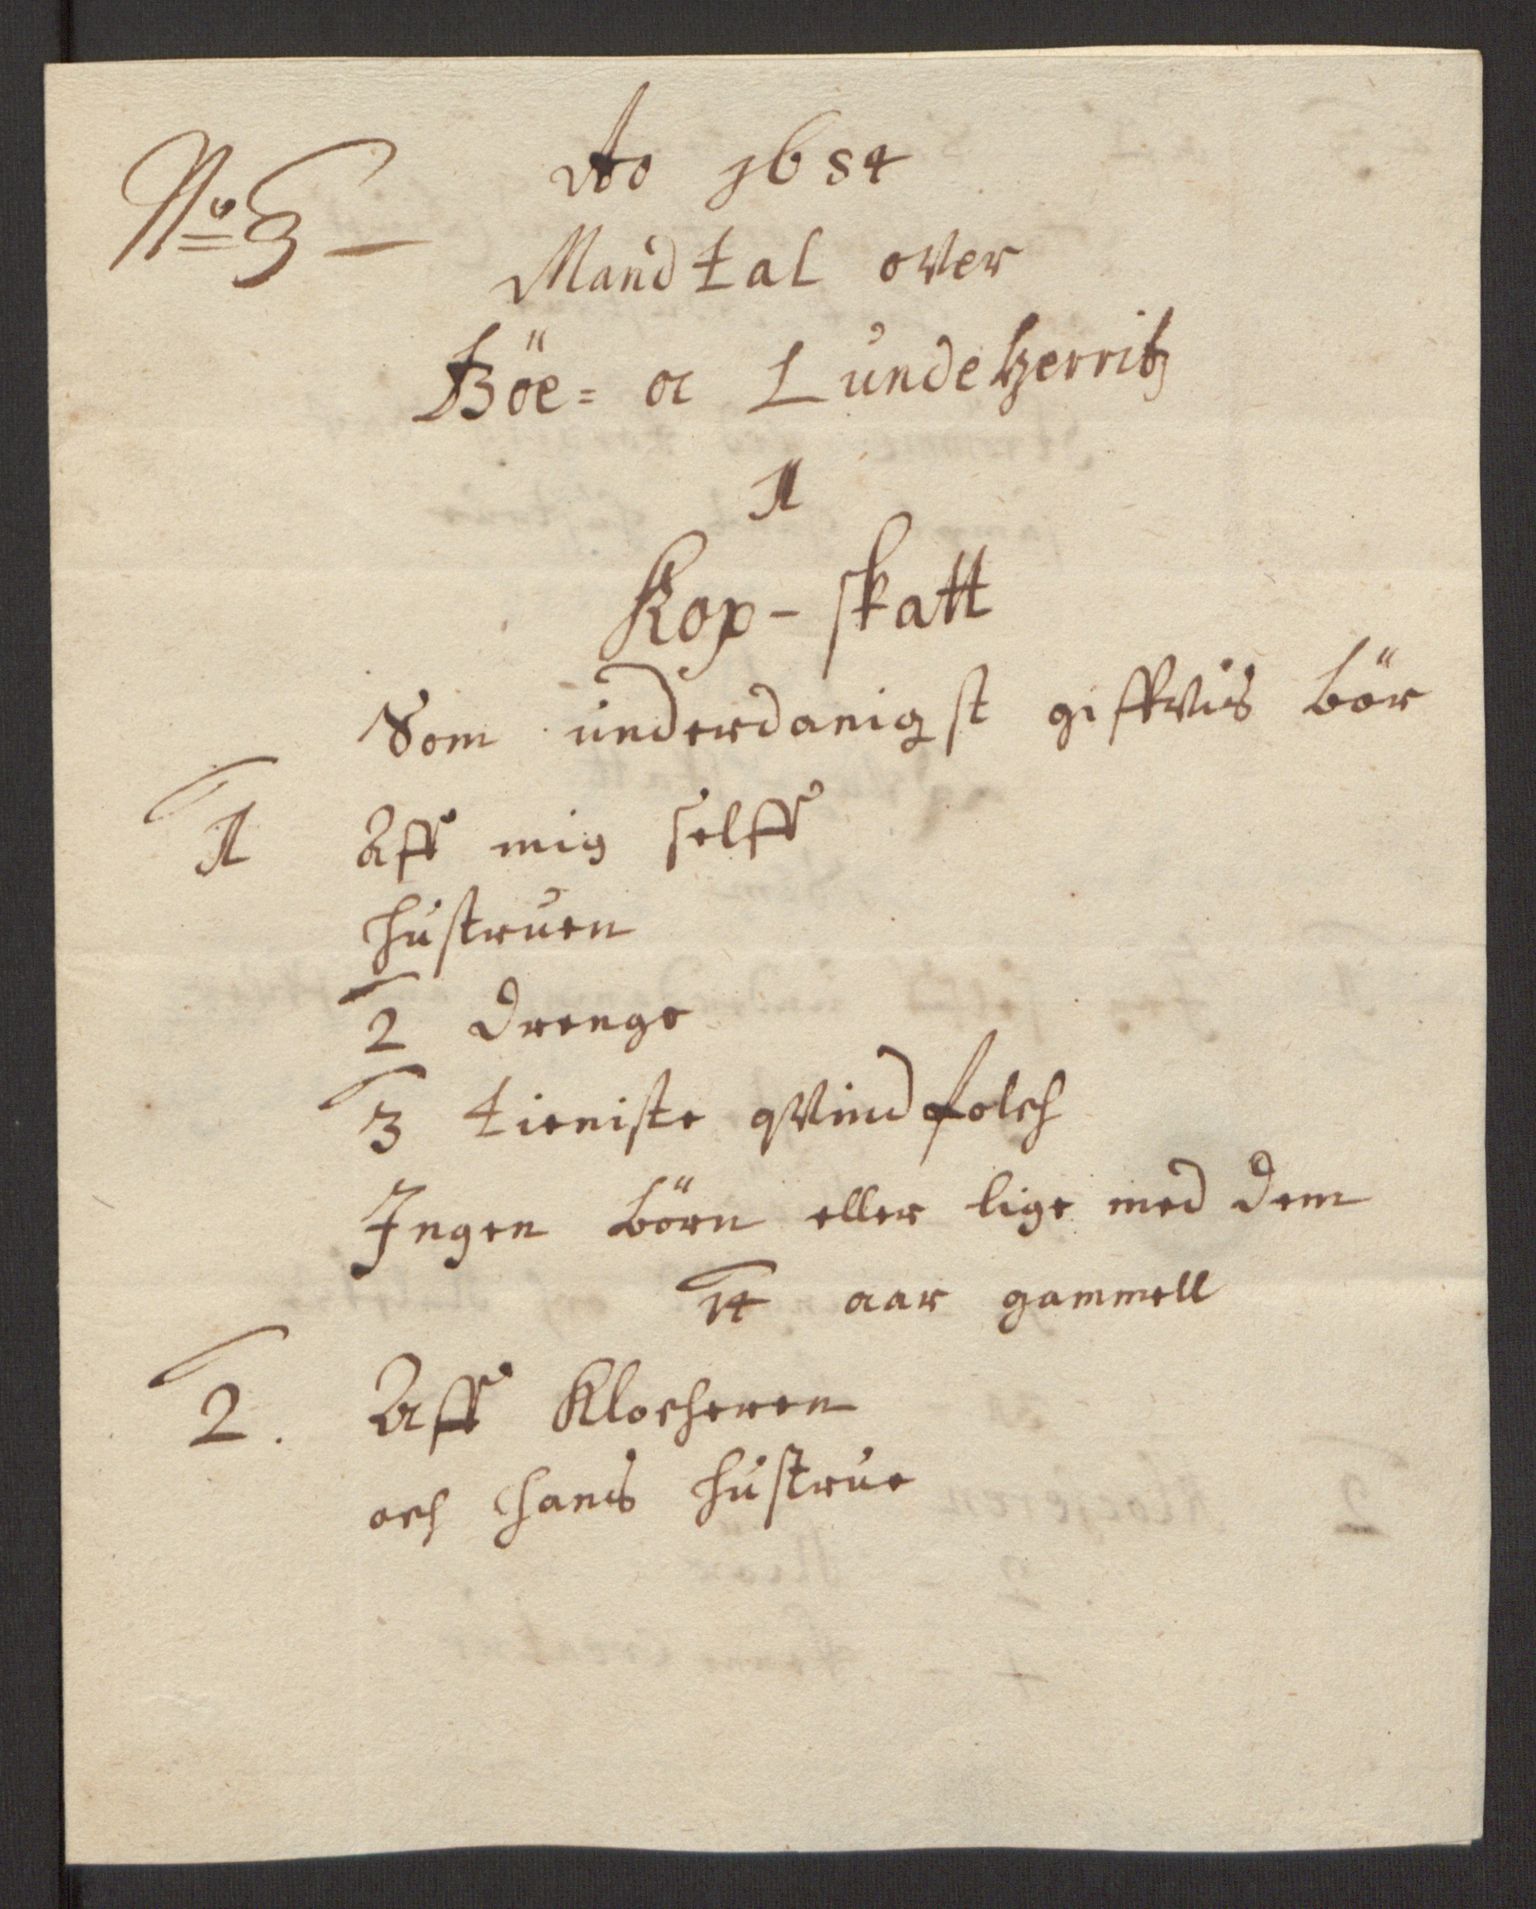 No 3
Ao 1684
Mandtal over
Böe= oc Lundeherritz
1
Kop-skatt
Som underdanigst giffvis bör
1 Aff mig selff
hustruen
2 drenge
3 tieniste qvindfolch
Ingen börn eller lige med dem
14 aar gammell
2. Aff Klocheren
och hans hustrue